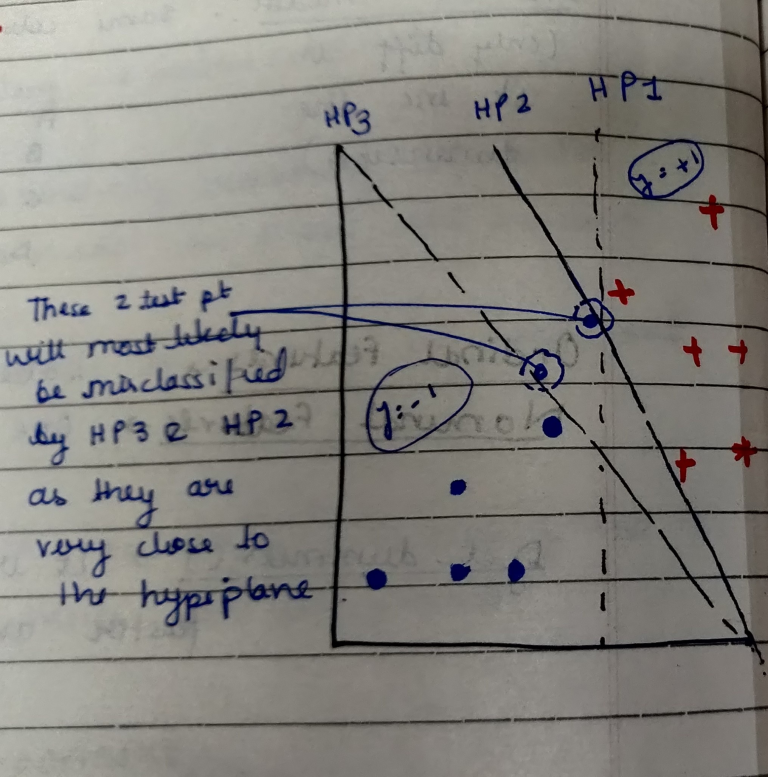 HP3 HP2 HP1
y = +1
These 2 test pt
will most likely
be misclassified
by HP3 & HP2
y = -1
as they are
very close to
the hyperplane